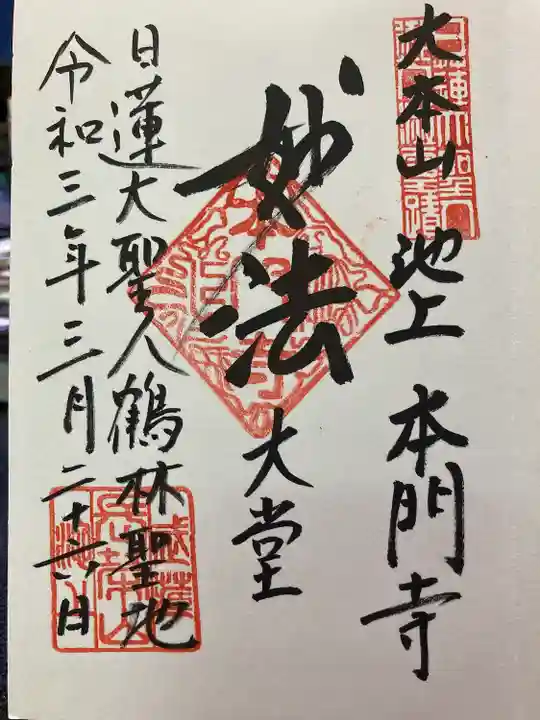 大本山 池上 本門寺
妙法 大堂
日蓮大聖人鶴林聖地
令和三年三月二十六日